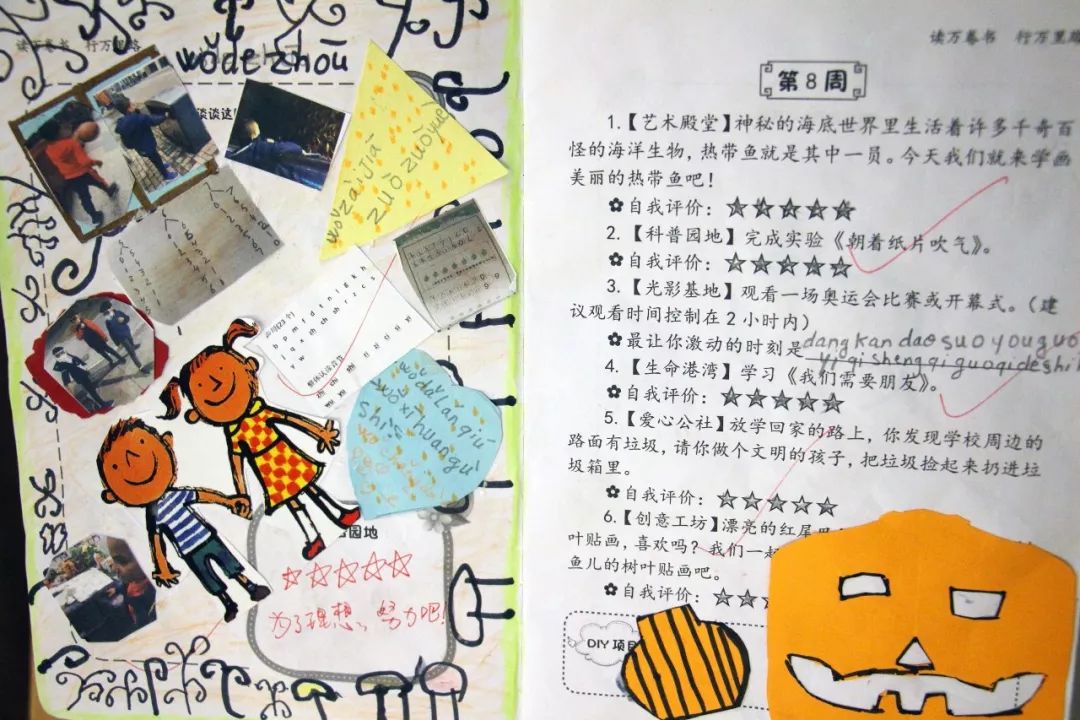 读万卷书 行万里路
wǒde zhōu
谈谈这
wǒ zàijiā
zuò zuòyuè
声母(23个)
b p m f d t n l g k h
j q x zh ch sh r z c s
y w
整体认读音节
zhi chi shi ri zi ci si
dǎ lán qiú
wǒ xǐ huan gu
shì
园地
☆☆☆☆☆
为了理想、努力吧!
读万卷书 行万里路
第8周
1.【艺术殿堂】神秘的海底世界里生活着许多千奇百
怪的海洋生物,热带鱼就是其中一员。今天我们就来学画
美丽的热带鱼吧!
✿自我评价:☆☆☆☆☆
2.【科普园地】完成实验《朝着纸片吹气》。
✿自我评价:☆☆☆☆☆
3.【光影基地】观看一场奥运会比赛或开幕式。(建
议观看时间控制在2小时内)
✿最让你激动的时刻是dang kan dao suo you guo
yi qi sheng qi guo qi de shi
4.【生命港湾】学习《我们需要朋友》。
✿自我评价:☆☆☆☆☆
5.【爱心公社】放学回家的路上,你发现学校周边的
路面有垃圾,请你做个文明的孩子,把垃圾捡起来扔进垃
圾箱里。
✿自我评价:☆☆☆☆☆
6.【创意工坊】漂亮的红尾
叶贴画,喜欢吗?我们一起
鱼儿的树叶贴画吧。
✿自我评价:☆☆
DIY 项目